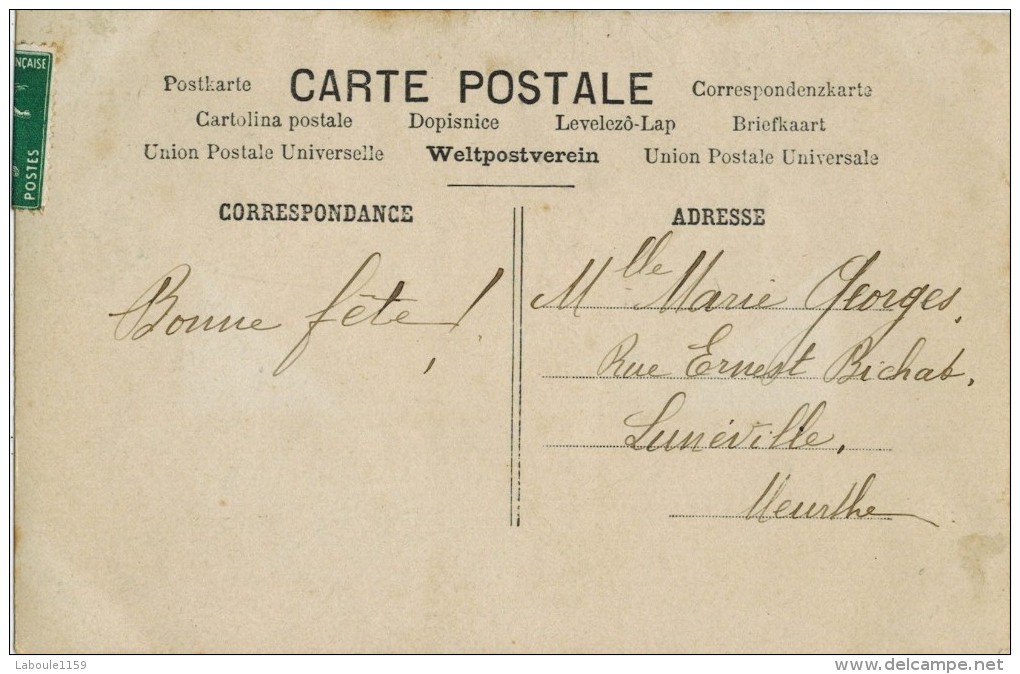 NÇAISE
POSTES
Postkarte CARTE POSTALE Correspondenzkarte
Cartolina postale Dopisnice Levelezô-Lap Briefkaart
Union Postale Universelle Weltpostverein Union Postale Universale
CORRESPONDANCE
Bonne fête!
ADRESSE
Mlle Marie Georges,
Rue Ernest Bichat,
Lunéville,
Meurthe
Laboule1159
www.delcampe.net